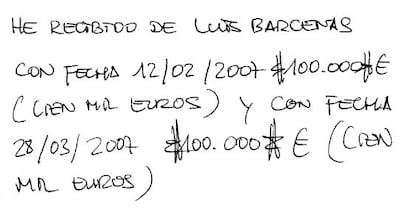 HE RECIBIDO DE LUIS BARCENAS
CON FECHA 12/02/2007 #100.000#€
(CIEN MIL EUROS) Y CON FECHA
28/03/2007 #100.000# € (CIEN
MIL EUROS)